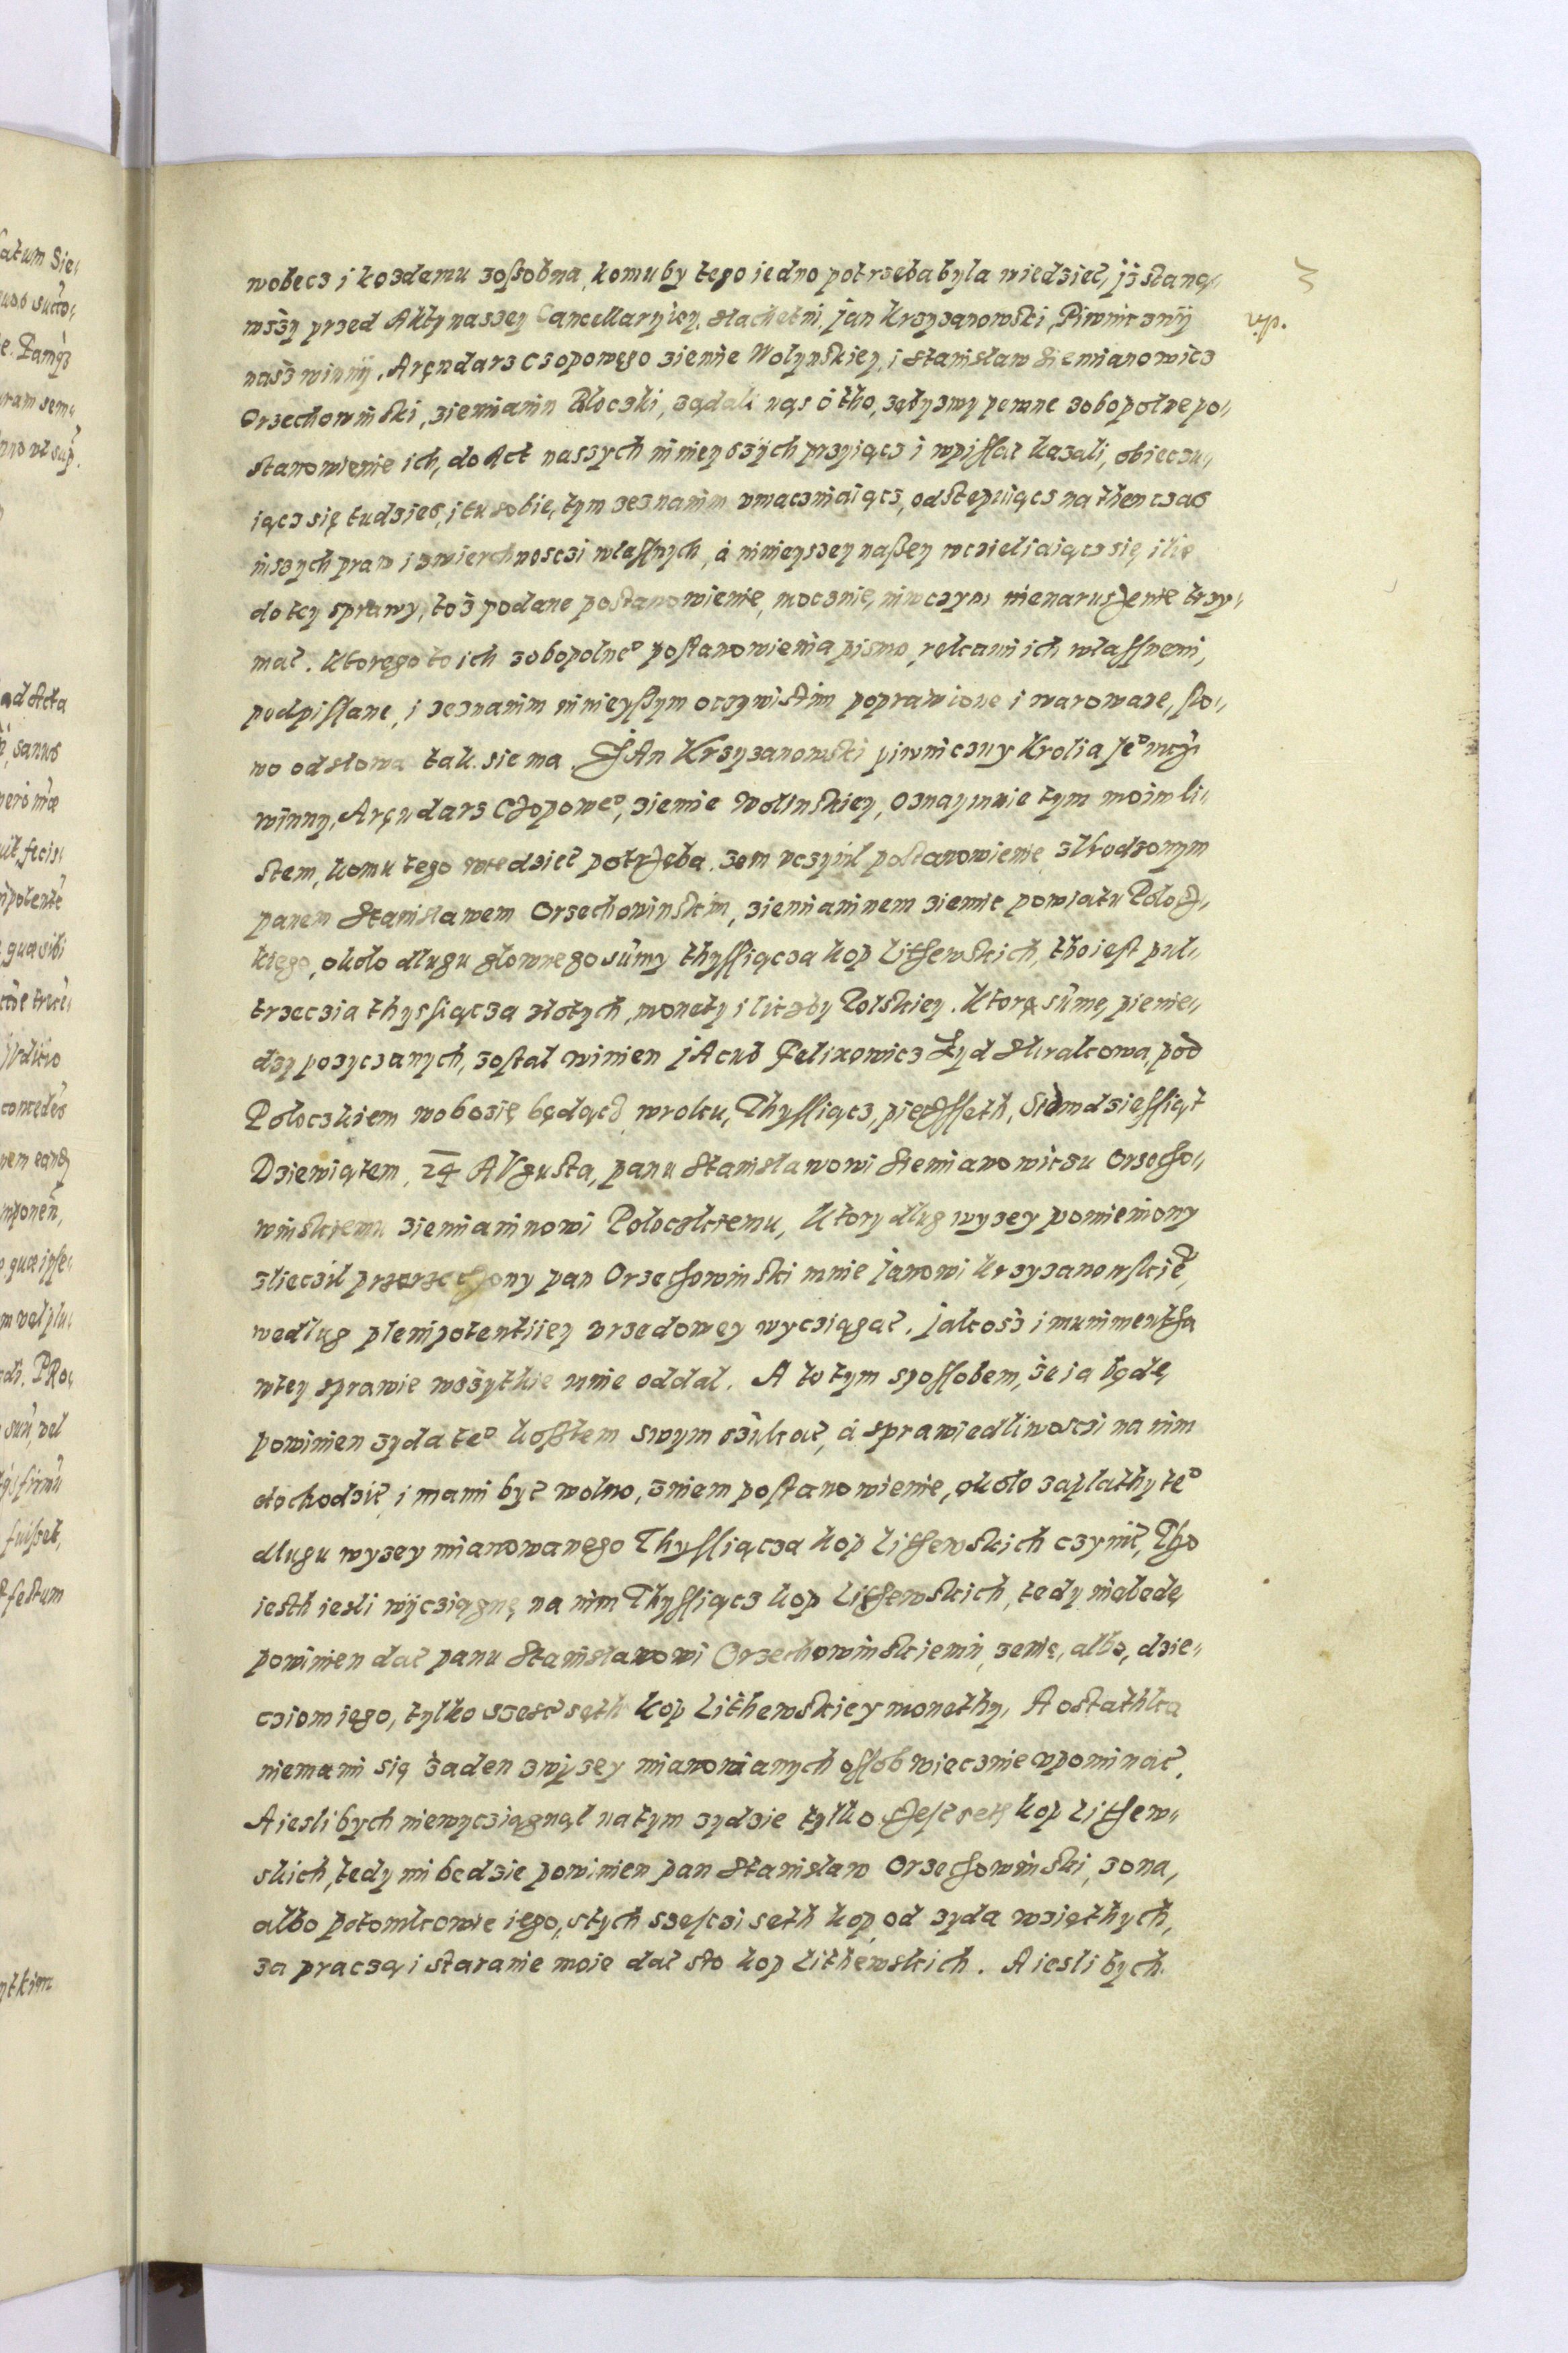 wobecz i kozdemu zoßobna, komuby tego iedno potrzeba byla wiedzieć, jż staną„
wszy przed Akty naszey Cancellaryiey, slachetni, jan Krzyzanowski, Piwniczny
nasz winny, Aręndarz Czopowęgo ziemie Wolynskiey, i Stanisław Siemianowicz
Orzechowinski, ziemianin Płoczki, ządali nąs ó tho, zębyzmy pewne zobopolne po„
stanowienie ich, do Act naszych ninieyszych przyiącz i wpissać kazali, obieczu„
iącz się tudziesz, i tu sobie, tym zeznanim vmaczniaiącz, odstepuiącz na then czas
inszych praw i zwierchnosczi własnych, á ninieyszey naßey wczieliaiącz się, ilie
do tey sprawy, toż podane postanowienie, mocznie, niwczym nienaruszenie trzy„
mać. Ktorego to ich zobopolneº postanowienia pismo, rękami ich własnemi,
podpissane, i zeznanim ninieyszym oczywistim poprawione i warowane, slo„
wo od słowa tak sie ma. JAn Krzyzanowski piwniczny Krolia Jeº mczi
winny, Aręndarz Czopoweº, ziemie Wolinskiey, oznaymuie tym moim li„
stem, komu tego wiedzieć potrzeba. zem vczynił postanowienie zUrodzonym
panem Stanisławem Orzechowinskim, ziemianinem ziemie powiatu Polocz„
kiego, około dlugu głownego sumy thyssiącza kop Lithewskich, tho iest pul„
trzeczia thyssiącza złotych, monety i liczby Polskiey. Ktorą sumę pienie„
dzy pozyczanych, zostal winien jAcub Felixowicz Zyd zKrakowa, pod
Poloczkiem wobozię będącz wroku, Thyssiącz, pieczsseth, Siedmdziessiąt
Dziewiątem, 24 AVgusta, panu Stanisławowi Siemianowiczu Orzecho„
winskiemu ziemianinowi Poloczkiemu, Ktory dlug wyzey pomieniony
zliecził przerzeczony pan Orzechowinski mnie janowi Krzyzanowskieº,
wedlug plenipotentiiey vrzedowey wycziągać. jakosz i munimentha
wtey sprawie wszytkie mnie oddal. A to tym spossobem, że ia będę
powinien zyda teº kosztem swym szukać, á sprawiedliwosczi na nim
dochodzić, i mami być wolno, zniem postanowienie, około zaplathy teº
dlugu wyzey mianowanego Thyssiącza kop Lithewskich czynić, Tho
iesth iesli wycziągnę na nim Thyssiącz kop Lithewskich, tedy niąbedę
powinien dać panu Stanisławowi Orzechowinskiemu, zenie, albo, dzie„
cziom iego, tylko szesć sęth kop Lithewskiey monethy, A ostathka
niemami się żaden zwyzey mianowianych ossób wiecznie vpominać.
A iesli bych niewycziągnąl na tym zydzie tylko szesć seth kop Lithew„
skich, tedy mi będzie powinien pan Stanisław Orzechowinski, zona,
albo potomkowie iego, stych szesczi seth kop, od zyda wzięthych,
za praczą i staranie moie dać sto kop Lithewskich. A iesli bych
3